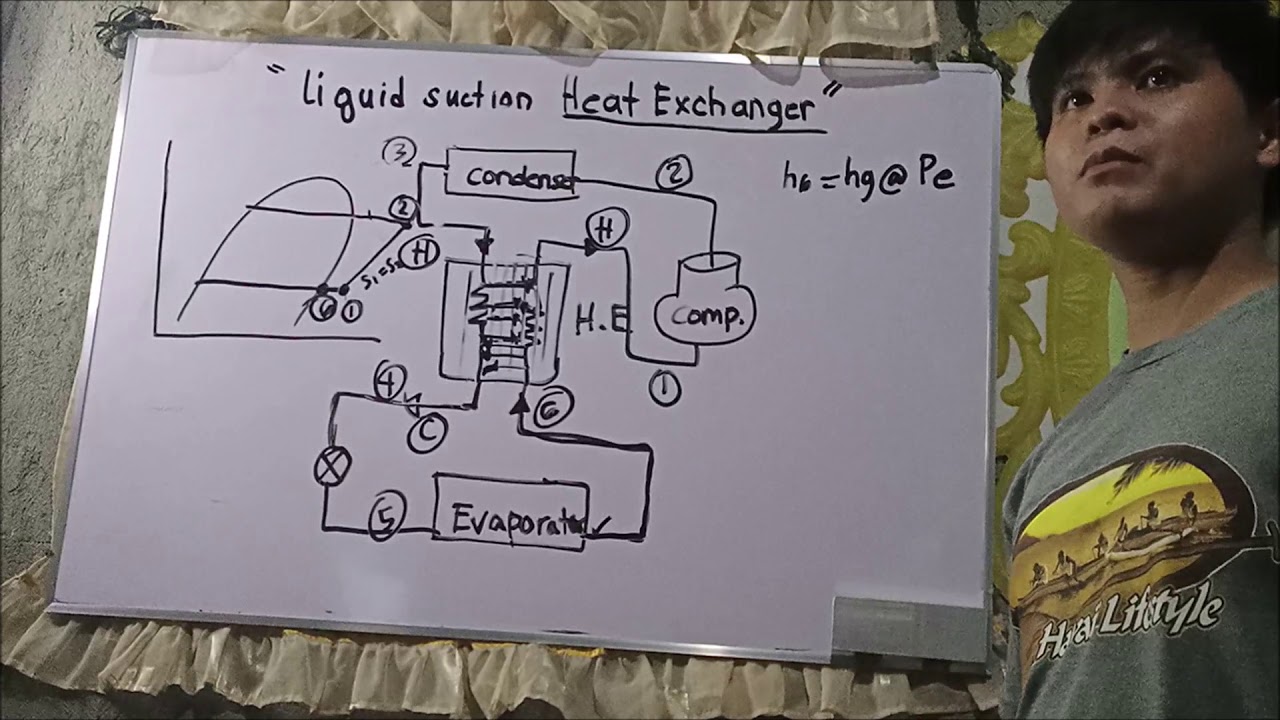 "Liquid suction Heat Exchanger"
h6 = hg @ Pe
3
Condenser
2
2
H
H
S1=S2
6 1
H.E
Comp.
1
4
C
6
5
Evaporator
Hawaii Lifestyle